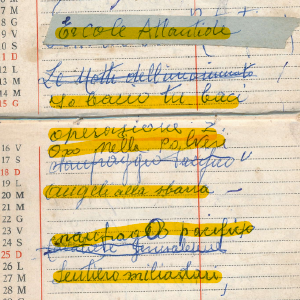 7 M
8 G
9 V
10 S
11 D
Ercole Atlantide
12 L
13 M
14 M
15 G
Le Notti dell'
Io bacio tu baci
operazione Z
Oro nella polvere
16 V
17 S
naufraggio
18 D
19 L
20 M
Angeli alla sbarra
21 M
22 G
23 V
naufragio pacifico
24 S
25 D
26 L
27 M
Sentiero
28 M